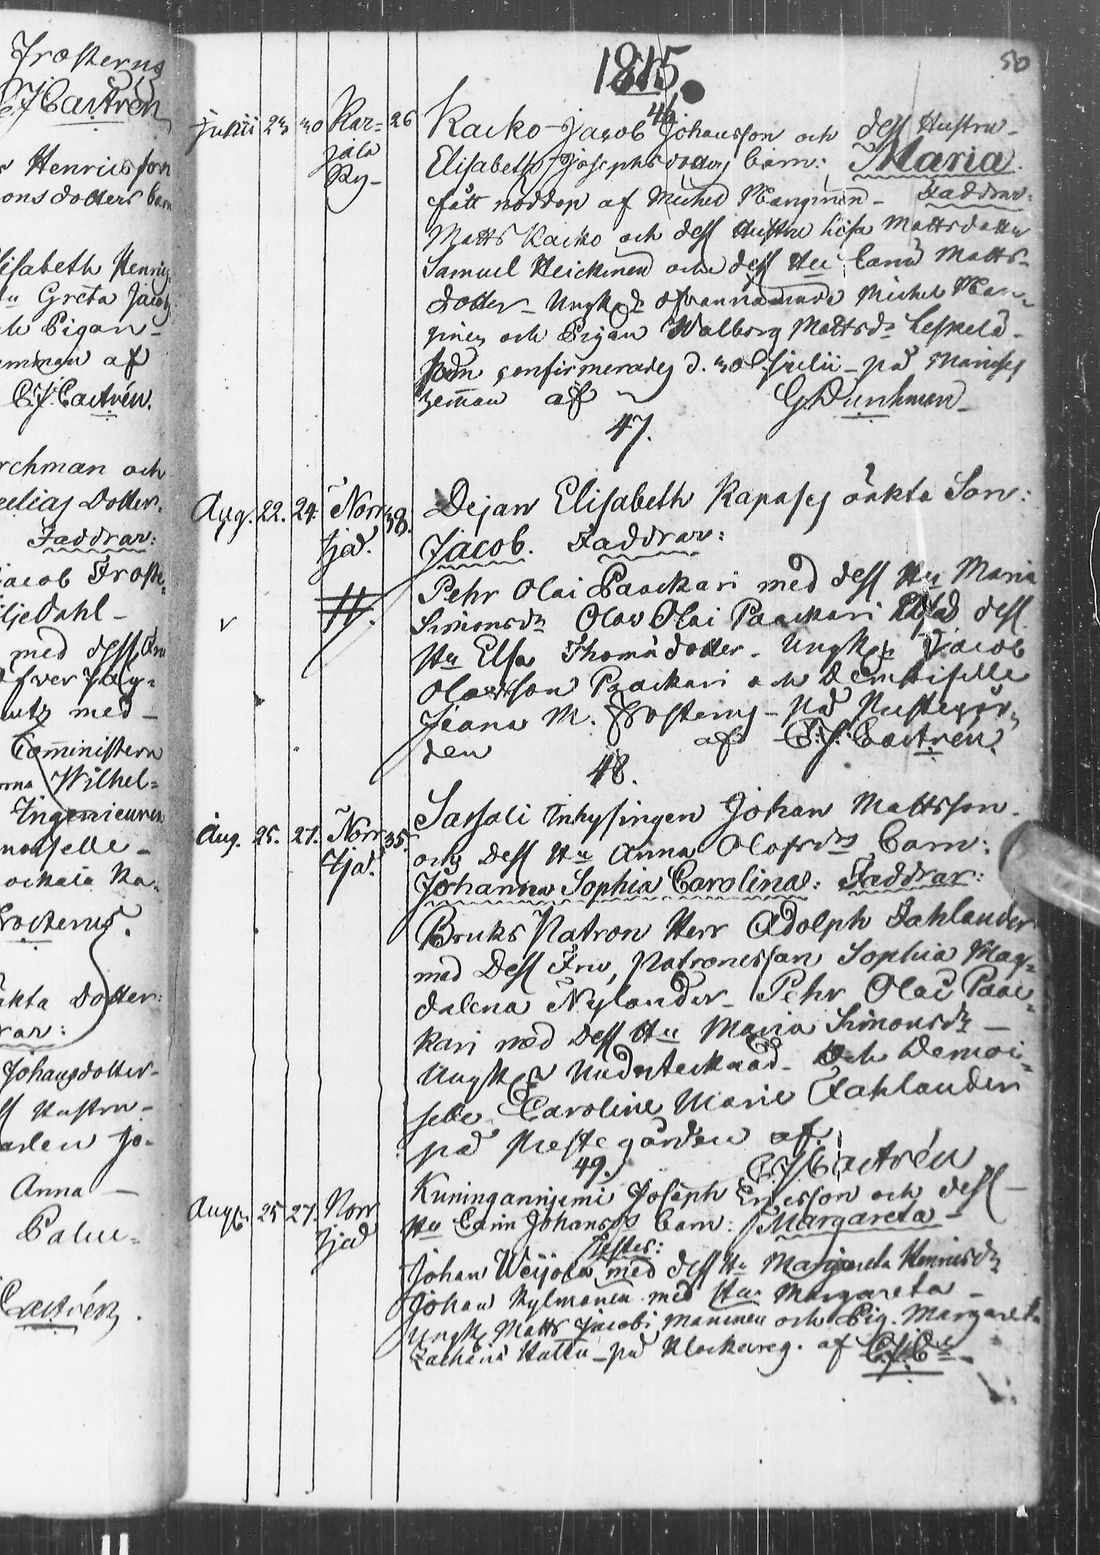 Frosterus
C.J. Castrén
Henricsson
onsdotters barn
lisabeth Henrics
Greta Jacobs
Pigan
af
C.J. Castrén.
rchman och
Dotter.
Faddrar:
Jacob Froste-
ljedahl
med dess Fru
med
Comministern
Wilhel=
Ingenieuren
moiselle
Frosterus.
äkta Dotter:
rar:
Johansdotter
Hustru
Jo-
Anna
Palu-
Castrén.
1815.
50
46.
Julii 23 30 Kar= 26 Kacko Jacob Johansson och dess Hustru
jala Elisabeth Josephsdotters barn: Maria
By- fått nöddop af Michel Manginen - Faddrar:
Matts Kacko och dess Hustru Lisa Mattsdotter
Samuel Heickinen och dess Hu Carin Matts-
dotter - Ungk. ofvannämnde Michel Man-
ginen och Pigan Walborg Mattsdr
som confirmerades d. 30 Julii - på
af G Dunkman
47.
Aug. 22. 24. Norr 38. Pejan Elisabeth Kapases oäkta Son:
tjad. Jacob. Faddrar:
Pehr Olai Paackari med dess Hu Maria
Simonsdr Olav Olai Paackari dess
Hu Elsa Thomædotter. Ungk. Jacob
Olofsson Paackari och Demoiselle
Jeana M. Frosterus - på Prestegår-
den af C.J. Castrén.
48.
Aug. 25. 27. Norr 35. Sassali Inhysingen Johan Mattsson
tjad. och dess Hu Anna Olofsdrs Barn:
Johanna Sophia Carolina: Faddrar:
Bruks Patron Herr Adolph Fahlander
med Dess Fru, Patronessan Sophia Mag=
dalena Nylander - Pehr Olai Paac=
kari med dess Hu Maria Simonsdr -
Ungk. Undertecknad - Och Demoi=
selle Caroline Marie Fahlander
på Prestegården af
C.J. Castrén
49.
Aug. 25 27. Norr Kuningannjemi Joseph Ericsson och dess
tjad Hu Carin Johansdrs barn: Margareta
Testes:
Johan Weijola med dess Hu Margareta Henricsdr
Johan Kylmänen med Hu Margareta -
Ungk. Matts Jacobi Manninen och Pig. Margareta
Zachariæ Huttu - på Klockareg. af C.J.C